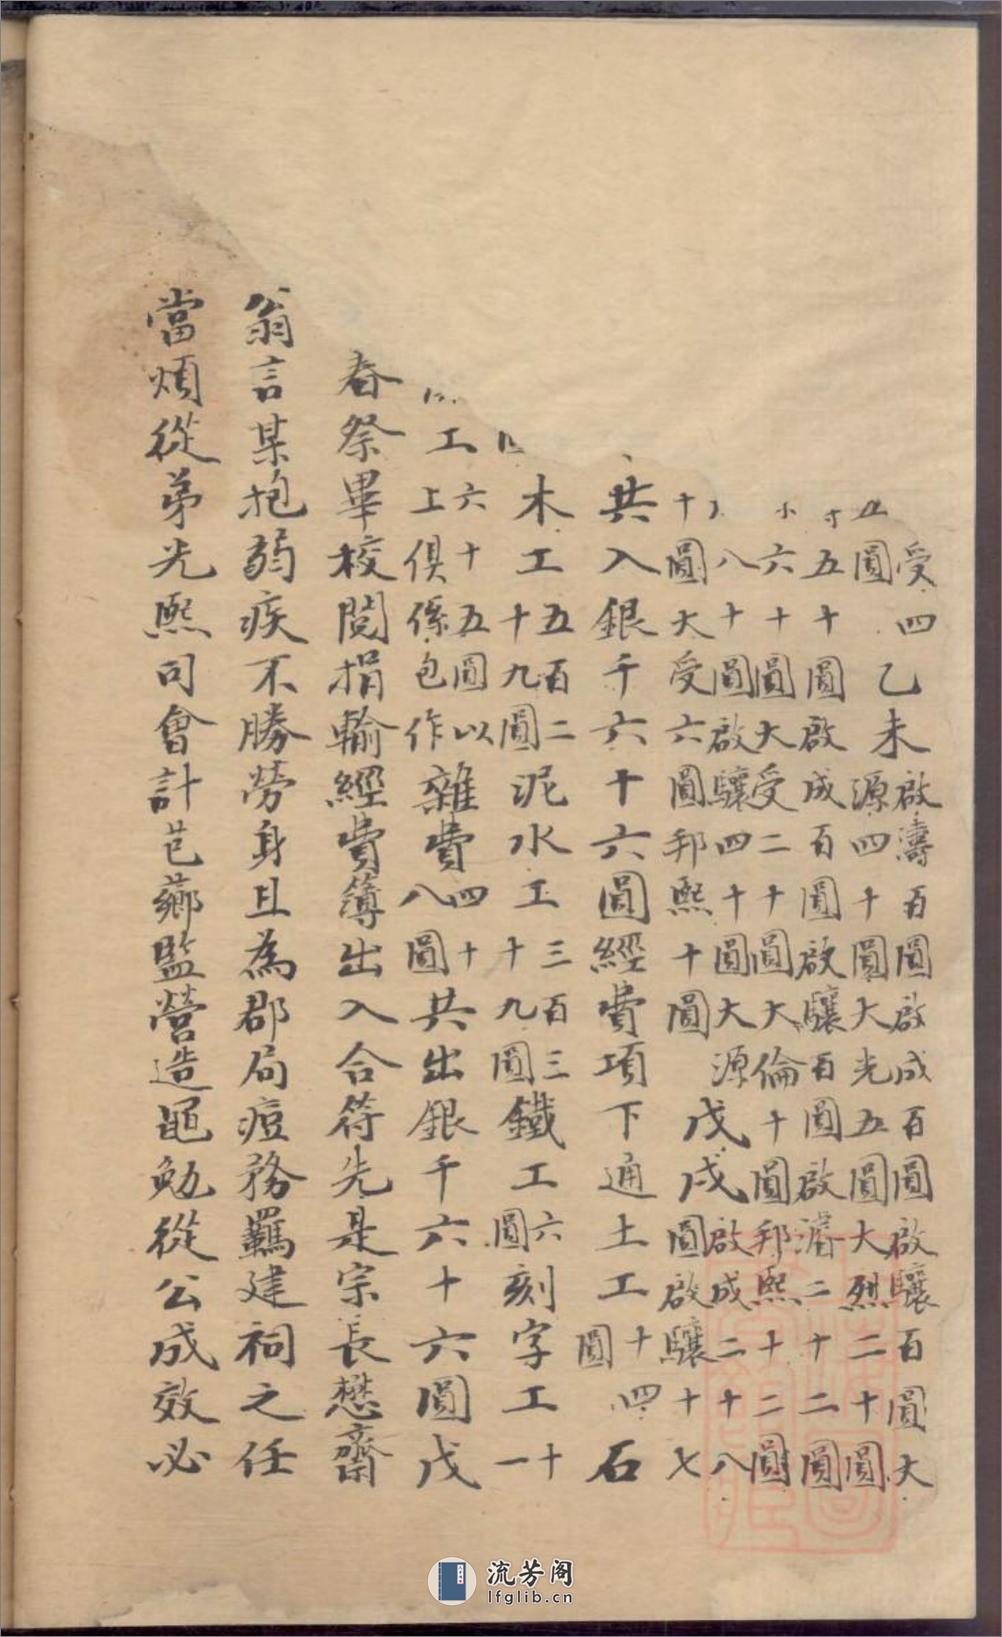 受四五圓乙未啟濤百圓啟成百圓啟驤百圓大源四十圓大光五圓大烈二十圓
五十圓啟成百圓啟驤百圓啟濬二十二圓六十圓大受二十圓大倫十圓邦熙十二圓
八十圓啟驤四十圓大源十圓大受六圓邦熙十圓戊戌啟成二十八圓啟驤十七
共入銀千六十六圓經費項下通土工十四圓石
木工五百二十九圓泥水工三百三十九圓鐵工六圓刻字工十一
工六十五圓以上俱係包作雜費四十八圓共出銀千六十六圓戊
春祭畢校閱捐輸經費簿出入合符先是宗長懋齋
翁言某抱弱疾不勝勞身且為郡局痘務羈建祠之任
當煩從弟光熙司會計芑薌監營造黽勉從公成效必
流芳阁
lfglib.cn